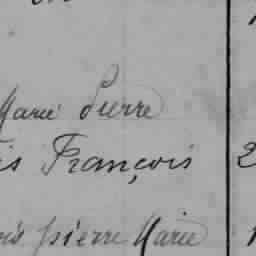 Marie Pierre
is François 2
ois pierre Marie